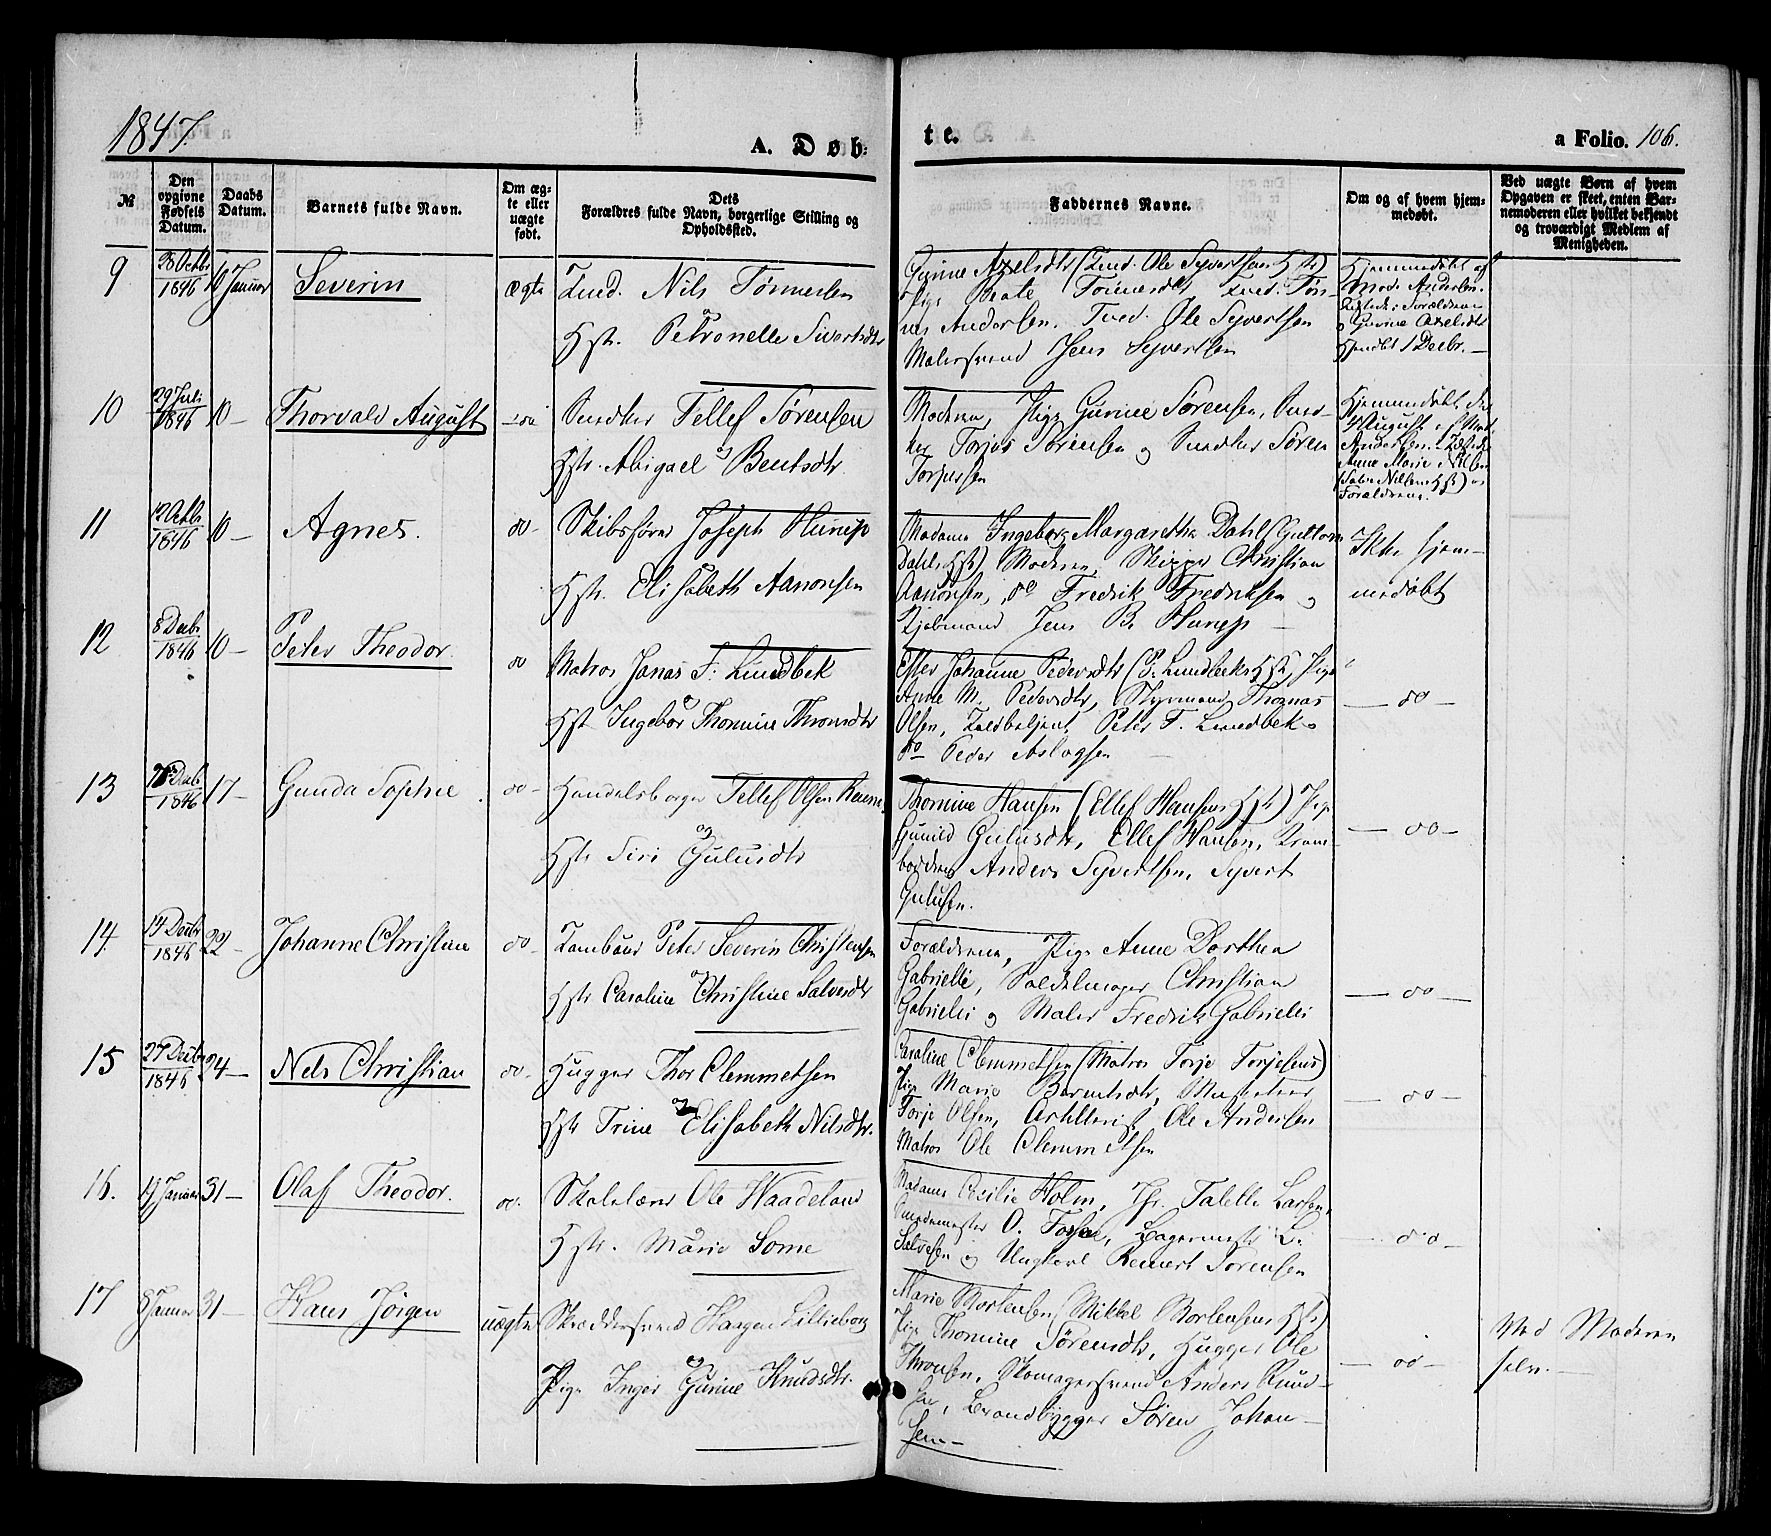 1847.
A. Døb-
te.
a Folio. 106.
№
Den opgivne Fødsels Datum.
Daabs Datum.
Barnets fulde Navn.
Om ægte eller uægte født.
Dets Forældres fulde Navn, borgerlige Stilling og Opholdssted.
Faddernes Navne.
Om og af hvem hjemmedøbt.
Ved uægte Børn af hvem Opgaven er skeet, enten Barnemoderen eller hvilket bekjendt og troværdigt Medlem af Menigheden.
9
28 Octbr 1846
Januar
Severin
ægte
Nils Tønnesen
og
Hstr. Petronelle Sivertsdtr
Gurine Axelsdtr (Ole Syvertsens Hstr)
Pige Beate Tønnesdtr Tøn-
nes Andersen. Ole Syvertsen
Malersvend Jens Syvertsen
Hjemmedøbt af
Mad. Andersen.
Forældrene
og Gurine Axelsdtr
1 Decbr.
10
29 Juli 1846
10 -
Thorvald August
Snedker Tellef Sørensen
og
Hstr. Abigael Bentsdtr.
Moderen, Pige Gurine Sørensen, Sned-
ker Torjus Sørensen og Snedker Søren
Torjussen
Hjemmedøbt den
August af Mad.
Andersen.
Anne Marie Nilsen
Forældrene.
11
12 Octbr 1846
10 -
Agnes.
do -
Skibsfører Joseph Hurup
Hstr. Elisabeth Aanonsen
Madame Ingeborg Margarethe Dahl (Guttorm
Dahls Hstr) Moderen, Skipper Christian
Aanonsen, do Fredrik Fredriksen og
Kjøbmand Jens B. Hurup
Ikke hjem-
medøbt
12
8 Decbr 1846
10 -
Peter Theodor.
do
Matros Jonas F. Lundbek
og
Hst Ingebor Thomine Thronsdtr
Ester Johanne Pedersdtr (P. Lundbeks Hstr, Pige
Anne M. Pedersdtr, Styrmand Thomas
Olsen, Toldbetjent Peter F. Lundbek
do Peder Aslagsen
- do -
13
Decbr 1846
17 -
Gunda Sophie
do -
Handelsborger Tellef Olsen
og
Hstr Siri Gulusdtr
Thomine Hansen (Ellef Hansens Hstr) Pige
Gunild Gulusdtr, Ellef Hansen, Kram-
Anders Syvertsen, Syvert
Gulusen.
- do -
14
14 Decbr 1846
22 -
Johanne Christine
do -
Tambour Peter Severin Christensen
og
Hstr Caroline Christine Salvesdtr
Forældrene, Pige Anne Dorthea
Gabrielle, Sadelmager Christian
Gabriele og Maler Fredrik Gabriele
- do -
15
27 Decbr 1846
24 -
Nels Christian
do -
Hugger Thor Clemmetsen
og
Hstr Trine Elisabeth Nilsdtr.
Caroline Clemmetsen (Matros Torje Torjesens)
Pige Marie Berntsdtr, Musketeer
Torje Olsen, Artillerist Ole Andersen
Matros Ole Clemmetsen
- do -
16.
Januar
31 -
Olaf Theodor.
do.
Skolelærer Ole Haadeland
Hstr. Marie Some
Madame Cecilie Holm, Jfr. Talette Larsen,
Smedemester O. Larsen, Bagermester L.
Salvesen og Ungkarl Reinert Sørensen
- do -
17
8 Januar
31 -
Hans Jörgen
uægte
Skræddersvend Haagen Lillieborg
og
Pige Inger Gurine Knudsdtr.
Marie Mortensen (Mikkel Mortensens Hstr)
Pige Thomine Sørensdtr, Hugger Ole
Thronsen, Skomagersvend Anders Knud-
sen, Brandbygger Søren Johan-
sen -
- do -
Ved Moderen
selv. -